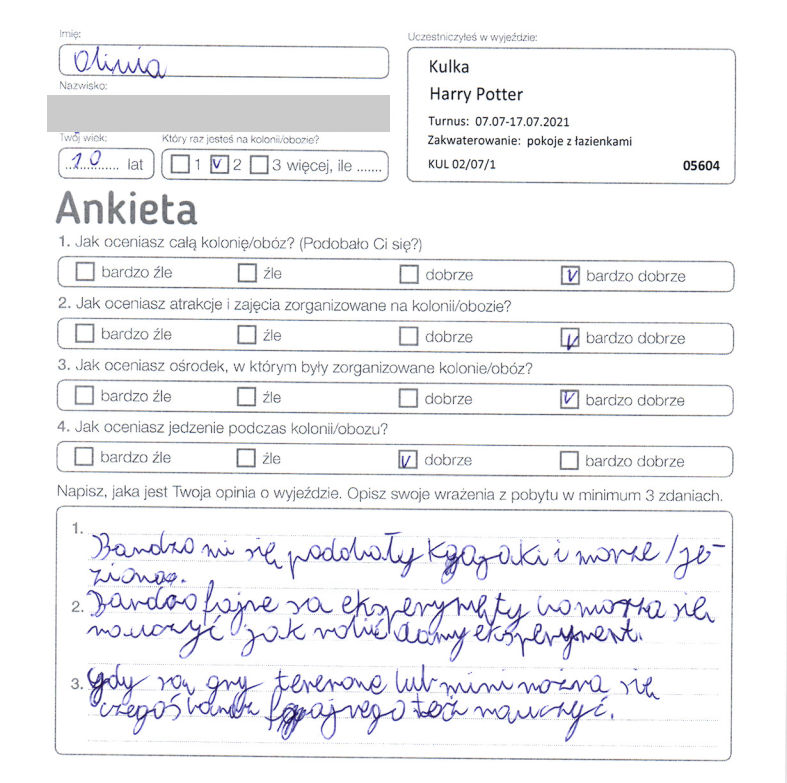 Imię:
Oliwia
Uczestniczyłeś w wyjeździe:
Nazwisko:
Kulka
Harry Potter
Turnus: 07.07-17.07.2021
Zakwaterowanie: pokoje z łazienkami
KUL 02/07/1 05604
Twój wiek: Który raz jesteś na kolonii/obozie?
10 lat 1 V 2 3 więcej, ile .......
Ankieta
1. Jak oceniasz całą kolonię/obóz? (Podobało Ci się?)
bardzo źle źle dobrze V bardzo dobrze
2. Jak oceniasz atrakcje i zajęcia zorganizowane na kolonii/obozie?
bardzo źle źle dobrze V bardzo dobrze
3. Jak oceniasz ośrodek, w którym były zorganizowane kolonie/obóz?
bardzo źle źle dobrze V bardzo dobrze
4. Jak oceniasz jedzenie podczas kolonii/obozu?
bardzo źle źle V dobrze bardzo dobrze
Napisz, jaka jest Twoja opinia o wyjeździe. Opisz swoje wrażenia z pobytu w minimum 3 zdaniach.
1. Bardzo mi się podobały kajaki i morze/je-
zioro.
2. Bardzo fajne są eksperymęty bo można się
nauczyć jak robić dany eksperyment.
3. Gdy są gry terenowe lub mini można się
czegoś fajnego też nauczyć.